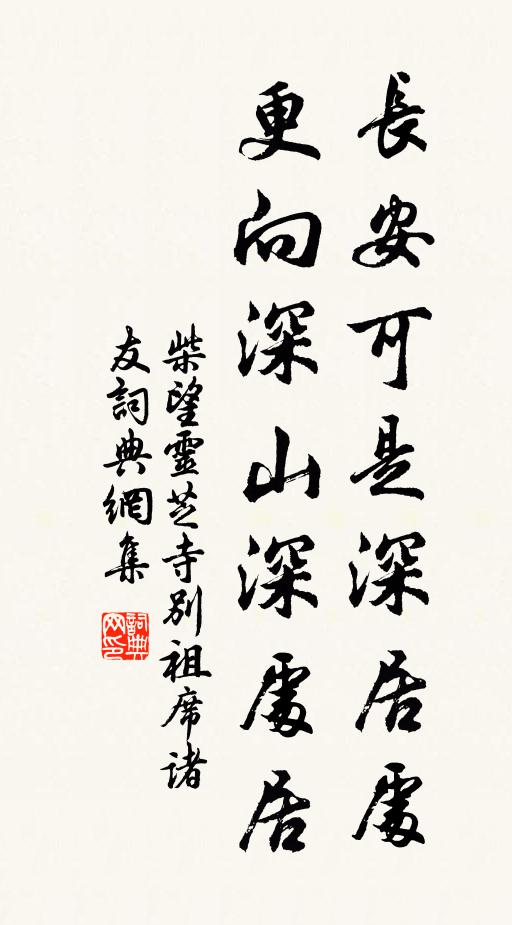 長安可是深居處
更向深山深處居
柴望靈芝寺別祖席諸
友詞典網集
詞典
网印